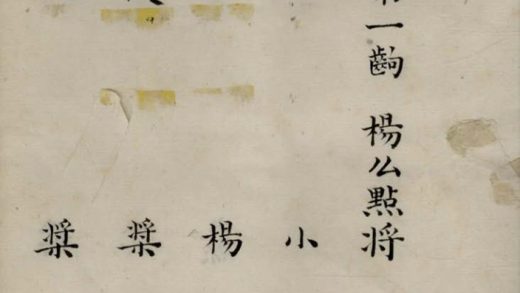 一齣 楊么點将
小
楊
槳
槳